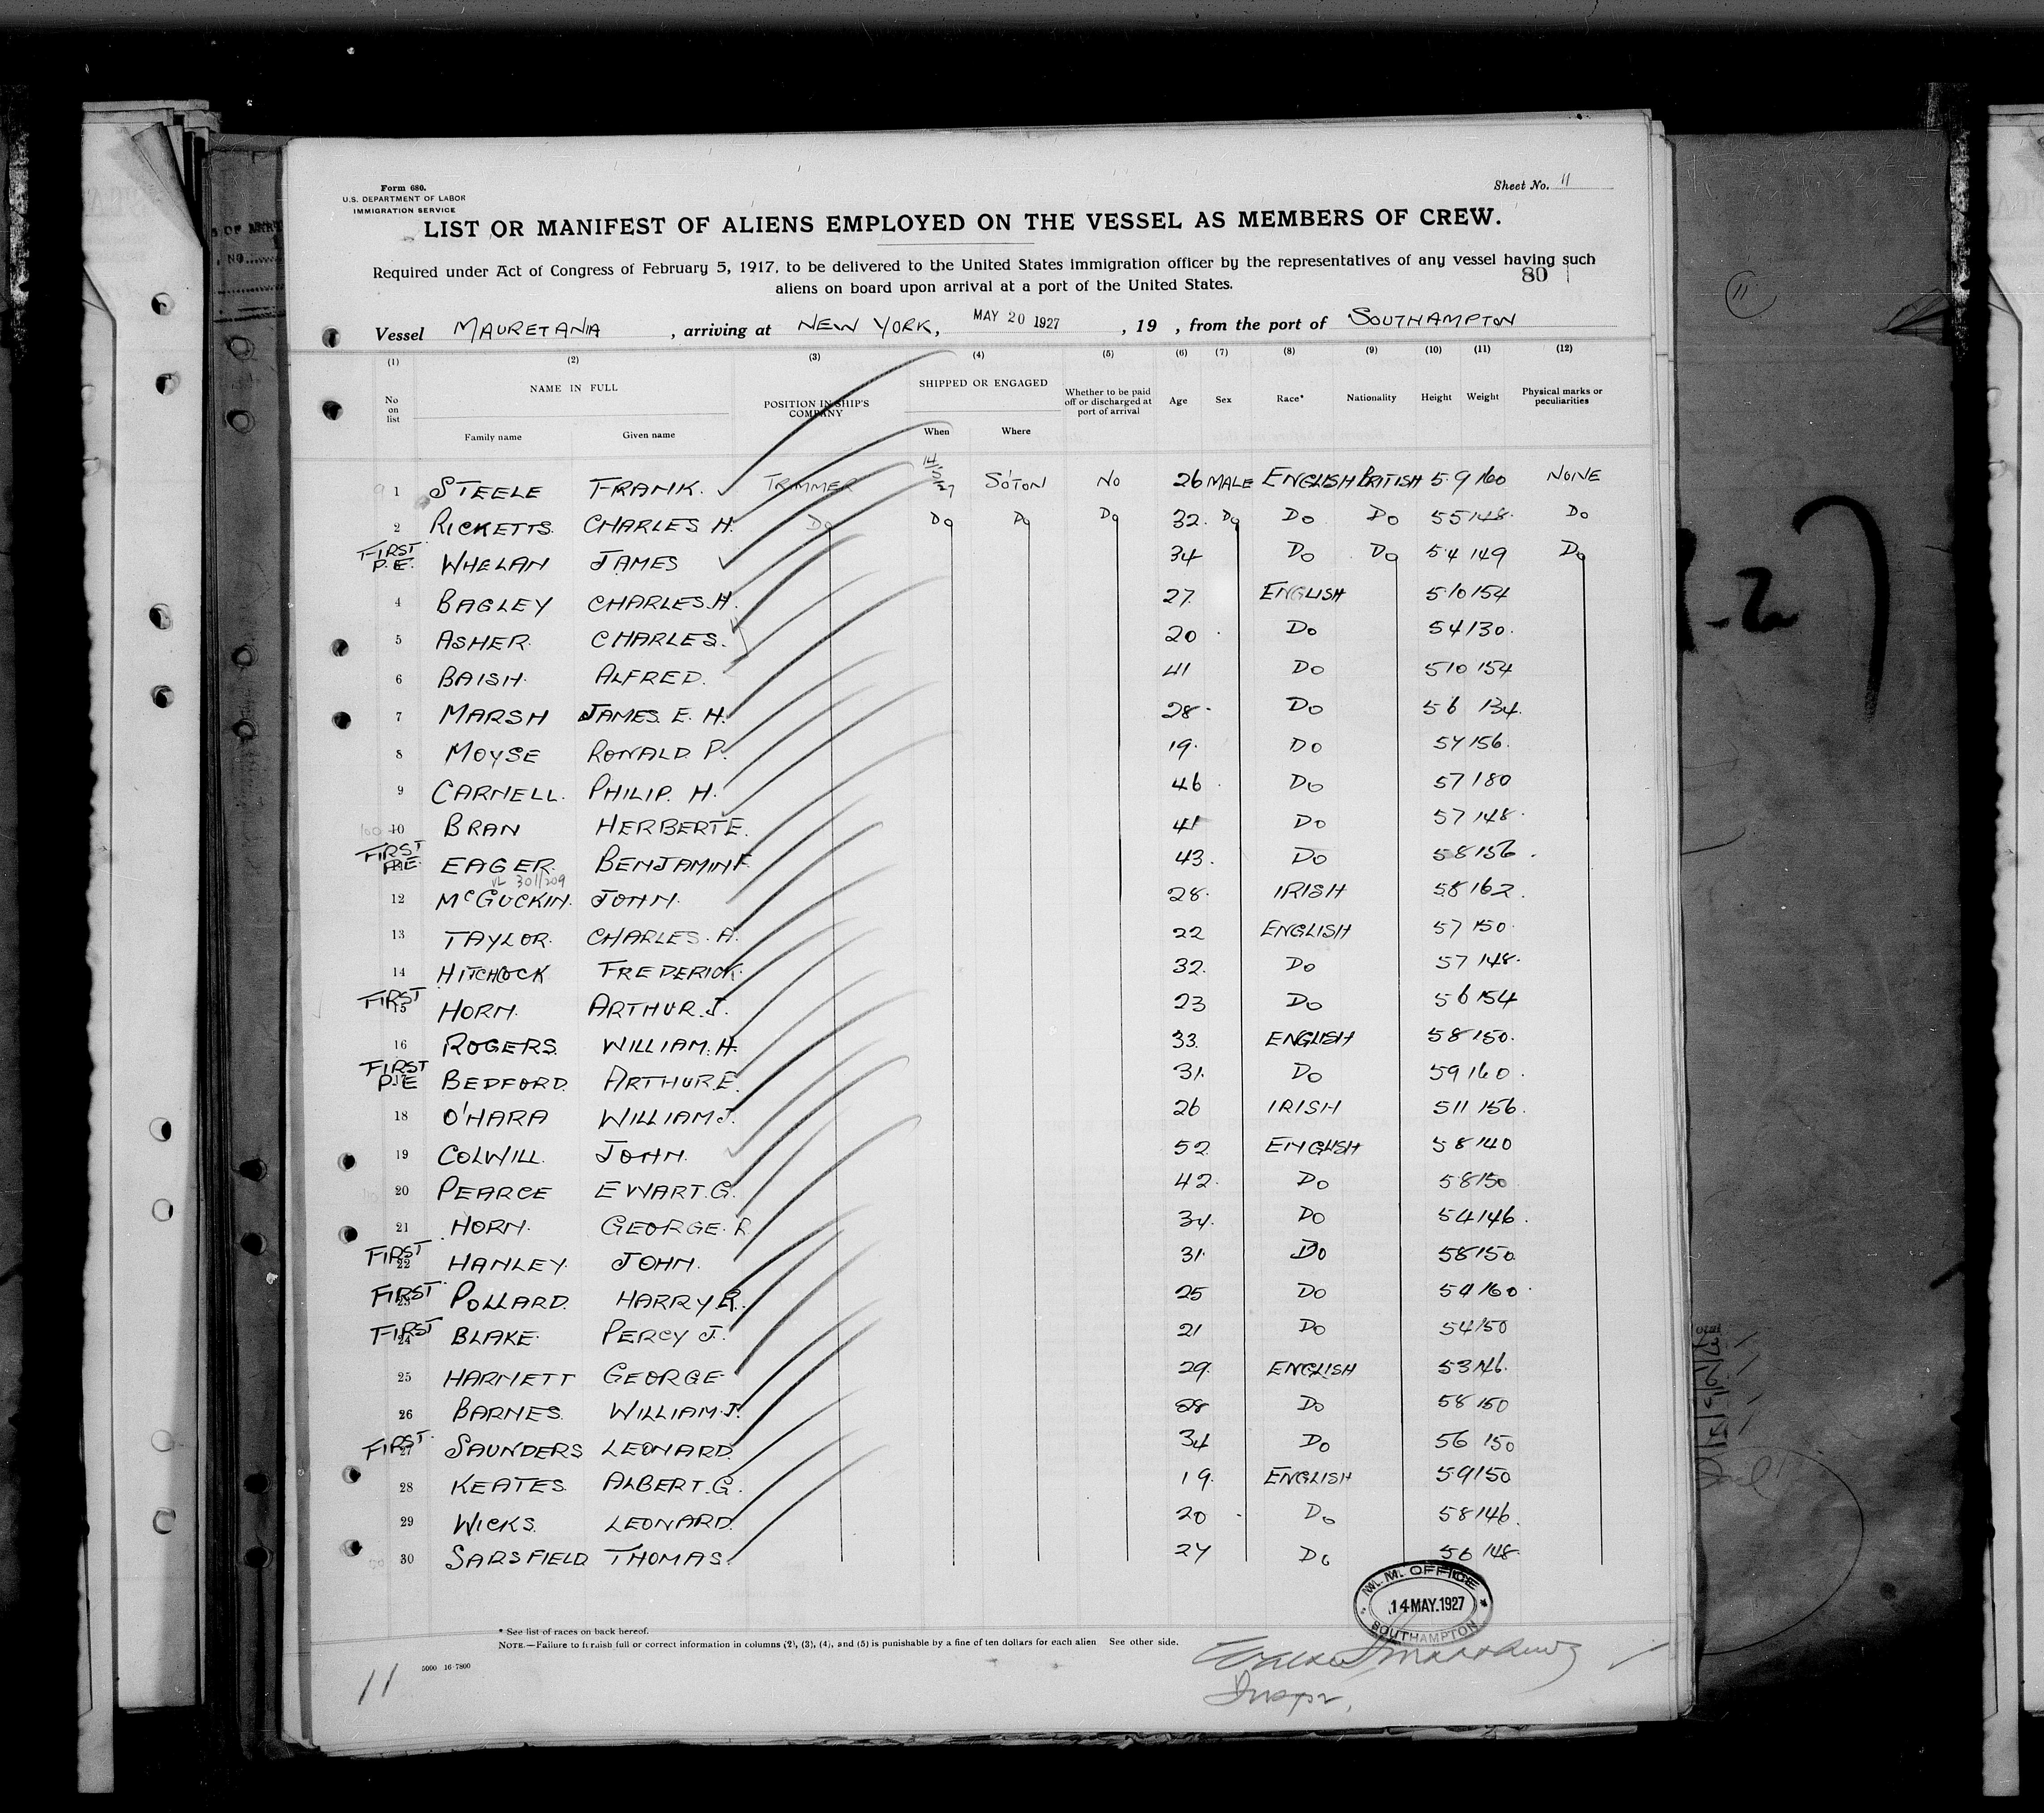 Form 680.
U.S. DEPARTMENT OF LABOR
IMMIGRATION SERVICE
Sheet No. 11
LIST OR MANIFEST OF ALIENS EMPLOYED ON THE VESSEL AS MEMBERS OF CREW.
Required under Act of Congress of February 5, 1917, to be delivered to the United States immigration officer by the representatives of any vessel having such
aliens on board upon arrival at a port of the United States.
80
Vessel MAURETANIA , arriving at NEW YORK, MAY 20 1927 , 19 , from the port of SOUTHAMPTON
(1) (2) (3) (4) (5) (6) (7) (8) (9) (10) (11) (12)
No on list NAME IN FULL POSITION IN SHIP'S COMPANY SHIPPED OR ENGAGED Whether to be paid off or discharged at port of arrival Age Sex Race* Nationality Height Weight Physical marks or peculiarities
Family name Given name When Where
1 STEELE FRANK. TRIMMER 14/5/27 S'OTON NO 26 MALE ENGLISH BRITISH 5 9 160 NONE
2 RICKETTS. CHARLES H. Do Do Do Do 32. Do Do Do 5 5 148. Do
FIRST P.E. WHELAN JAMES 34 Do Do 5 4 149 Do
4 BAGLEY CHARLES.H. 27. ENGLISH 5 10 154
5 ASHER. CHARLES. 20 Do 5 4 130.
6 BAISH. ALFRED. 41 Do 5 10 154
7 MARSH JAMES. E. H. 28. Do 5 6 134.
8 MOYSE RONALD P. 19. Do 5 4 156.
9 CARNELL. PHILIP. H. 46 Do 5 7 180
10 BRAN HERBERT E. 41 Do 5 7 148.
FIRST P.E. EAGER. BENJAMIN F. 43. Do 5 8 156.
301/209
12 McGUCKIN. JOHN. 28. IRISH 5 8 162.
13 TAYLOR. CHARLES. A. 22 ENGLISH 5 7 150.
14 HITCHCOCK FREDERICK. 32. Do 5 7 148.
FIRST 15 HORN. ARTHUR.J. 23 Do 5 6 154
16 ROGERS. WILLIAM.H. 33. ENGLISH 5 8 150.
FIRST P.E BEDFORD. ARTHUR.E. 31. Do 5 9 160.
18 O'HARA WILLIAM J. 26 IRISH 5 11 156.
19 COLWILL. JOHN. 52 ENGLISH 5 8 140
20 PEARCE EWART.G. 42. Do 5 8 150
21 HORN. GEORGE. R. 34. Do 5 4 146.
FIRST 22 HANLEY. JOHN. 31. Do 5 8 150
FIRST 23 POLLARD. HARRY R. 25 Do 160.
FIRST 24 BLAKE. PERCY J. 21 Do 5 4 150
25 HARNETT GEORGE 29. ENGLISH 5 3 146.
26 BARNES. WILLIAM.J. 28 Do 5 8 150
FIRST 27 SAUNDERS LEONARD. 34 Do 5 6 150
28 KEATES. ALBERT.G. 19. ENGLISH 5 9 150
29 WICKS. LEONARD. 20 Do 5 8 146.
30 SARSFIELD THOMAS. 24 Do 5 6 148.
M.M. OFFICE
14 MAY.1927
SOUTHAMPTON
* See list of races on back hereof.
NOTE.—Failure to furnish full or correct information in columns (2), (3), (4), and (5) is punishable by a fine of ten dollars for each alien See other side.
5000 16-7800
11
Inspr,
11